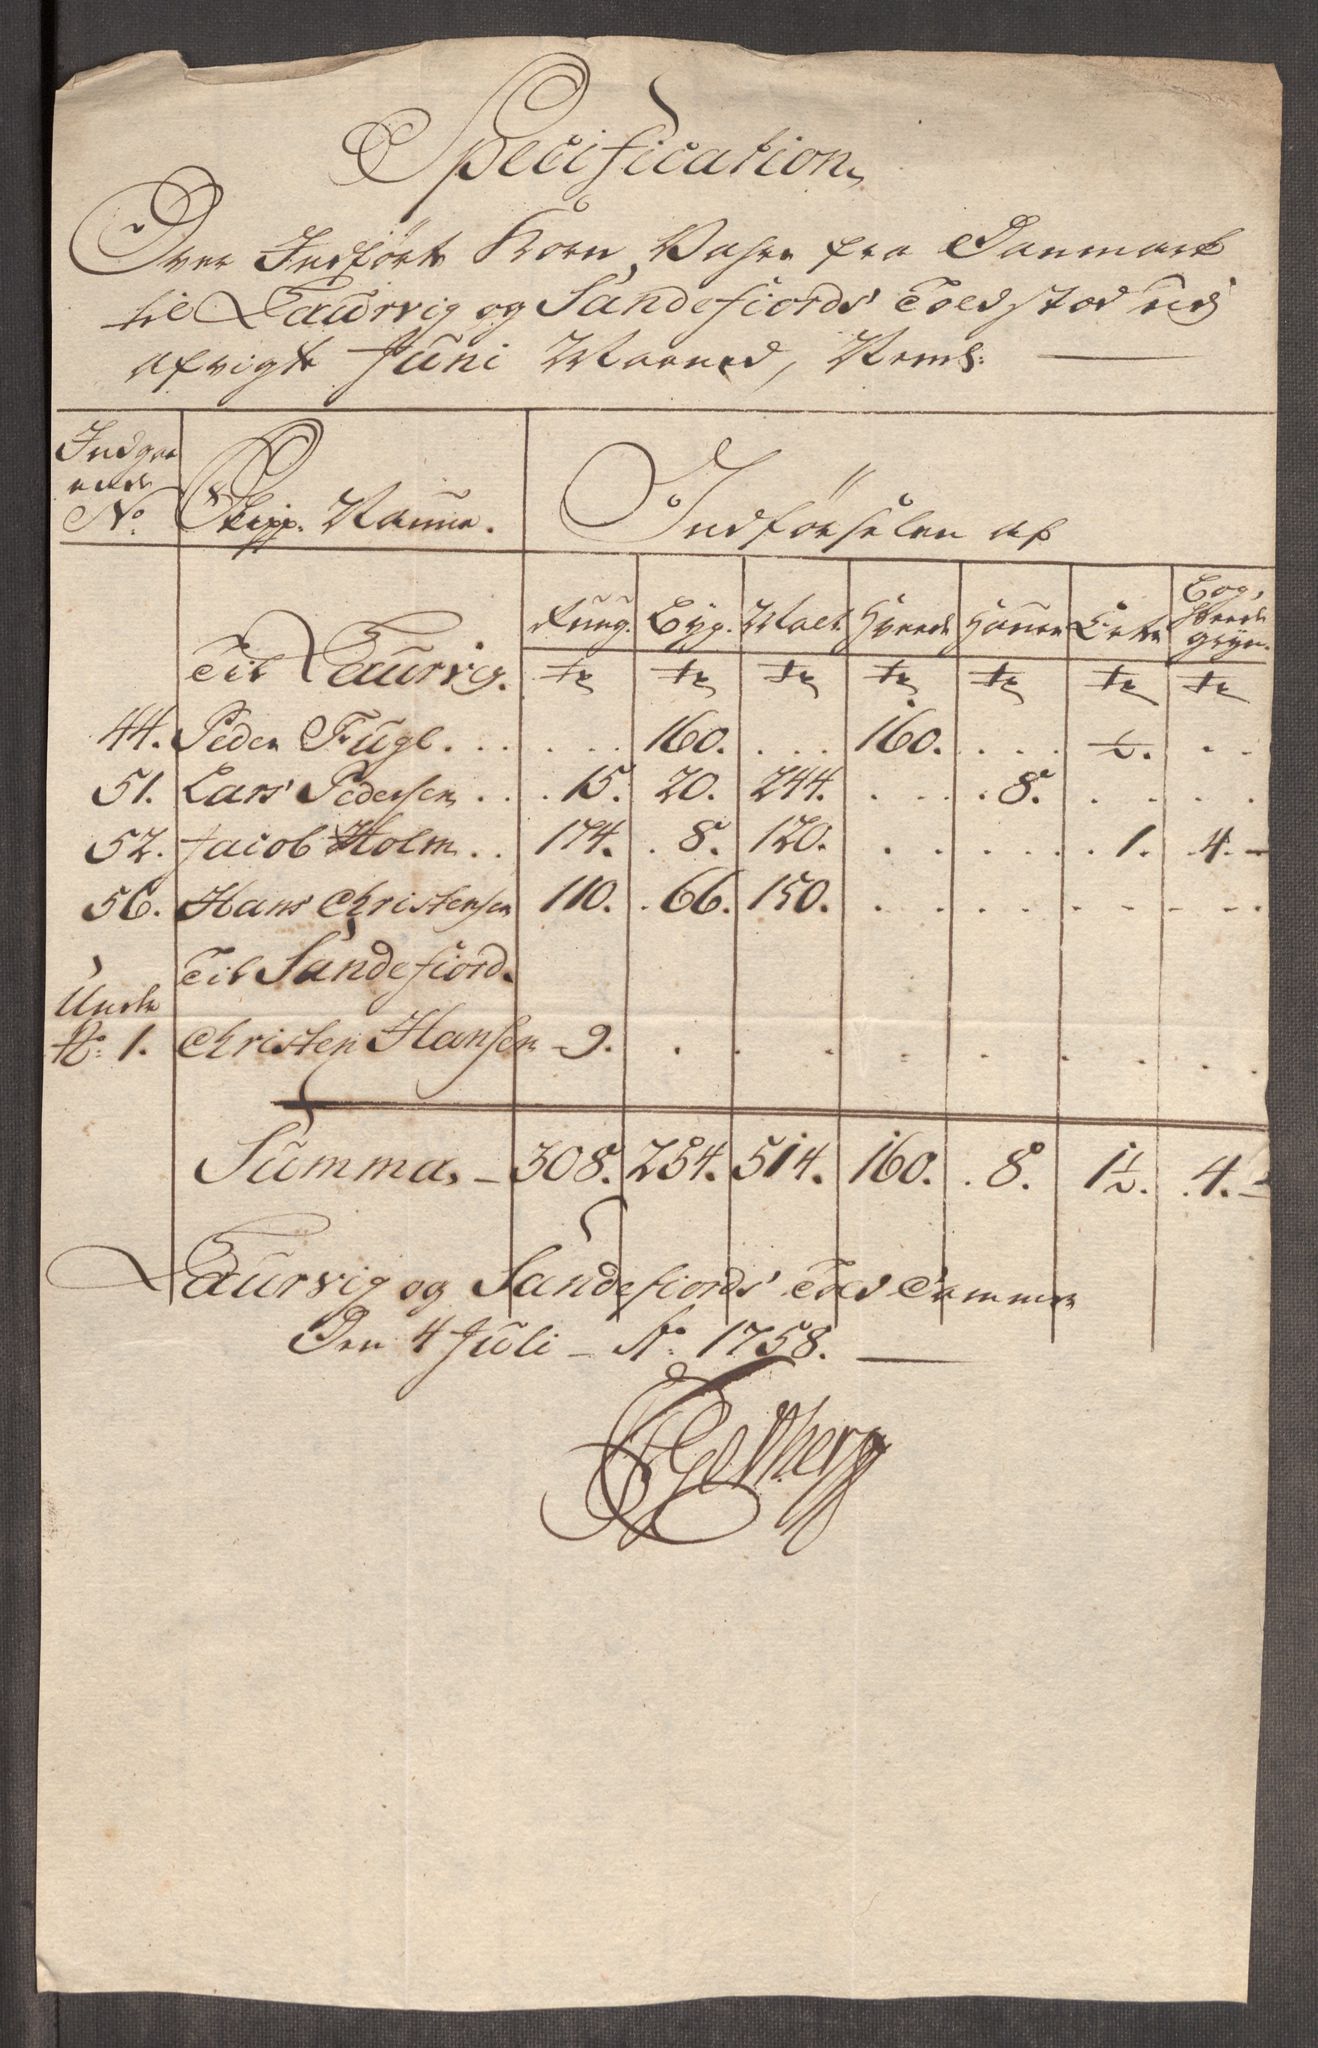 Specification
Over Indført Korn Vahre fra Danmark
til Laurvig og Sandefiords Toldstæd udj
afvigte Juni Maaned, Neml:
Indgaa
ende
No.
Skipp. Naune.
Indførselen af
Ruug. Byg. Malt Hvede Haure Erter Bog,
Hvede
gryn.
Til Laurvig. tr tr tr tr tr tr tr
44. Peder Fugl . . . . . . 160. . . . 160. . . . ½. . .
51. Lars Pedersen . . . 15. 20. 244. . . . . 8. . . . .
52. Jacob Holm . . 174. . 8. 120. . . . . . . 1. . 4. -
56. Hans Christensen 110. . 66. 150. . . . . . . - - - -
Til Sandefiord.
Under
No: 1. Christen Hansen - 9. . . . . . . . . .
Summa, - 308. 254. 514. 160. . 8. 1½. . 4. -
Laurvig og Sandefiords Told Cammer
Den 4 Juli - Ao: 1758.